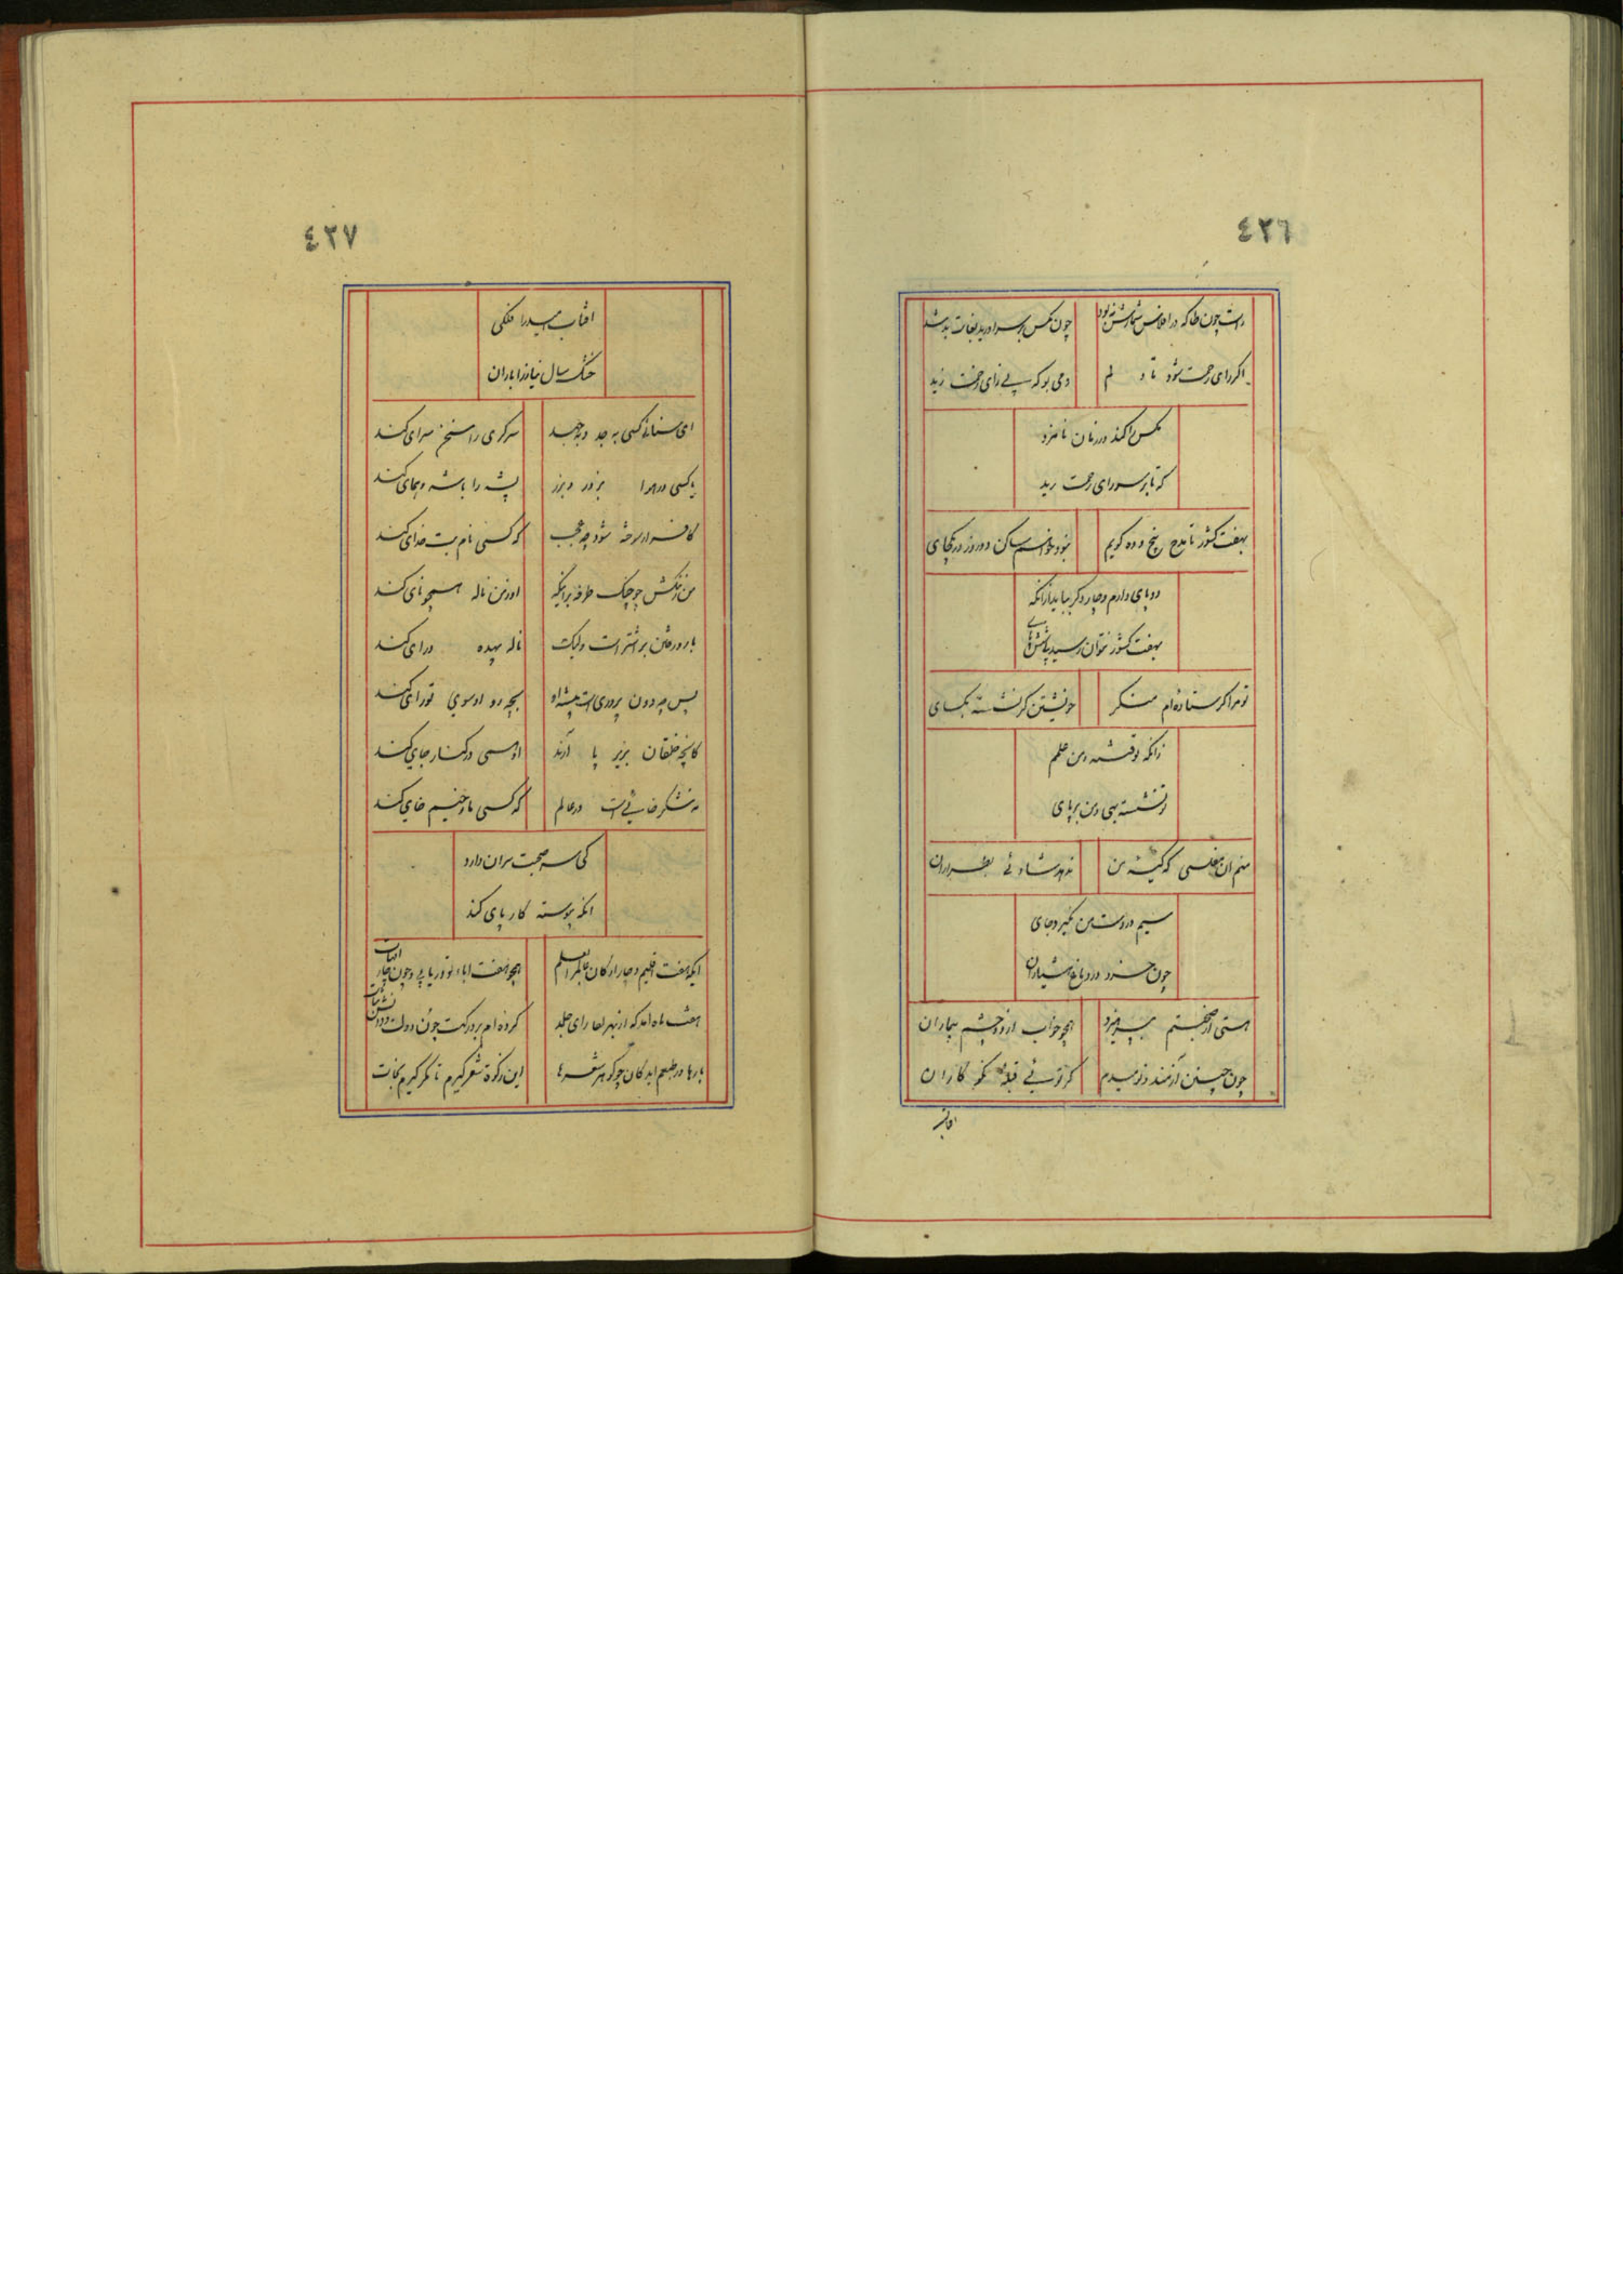 ٤٢٦
راست چون خاکه در افلاس شمارش نبود چون مکس بر سرا و رید بغایت بد شد
اگر رای رحمت شود تا و لم دمی بو که بی زای زحمت زید
مکس را کند در زمان نامزد
که تا بر سر رای رحمت رید
بهفت کشور تا مدح پنج و ده کویم نبود خواهم ساکن دو روز در یکجای
دو پای دارم و چار دگر بباید ازانکه
بهفت کشور نتوان رسید پاش پای
تو مرا کر ستاده ام منکر خویشتن کر نشسته یکسای
زانکه تو قسمه و من علمم
تو نشسته بهی و من برپای
منم ان مفلسی که کیسه من نه نهد شادئی بطراران
سیم در دست من نکیرد جای
چون خرد در دماغ هشیاران
هستی از صحبتم بپرهیزد همچو خواب از دو چشم بیماران
چون چنین آزمند و نومیدم کز توئی قبله نکو کاران
افتاب
٤٢٧
افتاب امید را فلکی
خشک سال نیاز را باران
ای سنائی کسی به جد و بجهد سرکری را سخن سرای کند
یا کسی در هوا بزور و بزر پشه را باشه و همای کند
کافر ار سوخته شود چه عجب که کسی نام بت خدای کند
من زنکش چو چنک طرفه برانکه او ز من ناله همچو نای کند
بار در شتن بر اشتر است ولیک ناله بیهده درای کند
بس چه دون پروری است پیشه او بچه رو او سوی تو رای کند
کانچه خلقان بزیر پا آرند او همی در کنار جای کند
نه شکر خائی است در عالم که کسی ما و خیم خای کند
کی سر صحبت سران دارد
انکه پیوسته کار پای کند
ایکه هفت اقلیم و چار ارکان عالم را بعلم همچو هفت اباء تو در یابی و چون چار امهات
هشت ماه امد که از بهر لقا رای جلد کرده ام بر درکهت چون دولت و دانش ثبات
بارها در طبعم امد کان چو کوهر شعرها این زکوة شعر کیرم تا مکر کیرم نجات